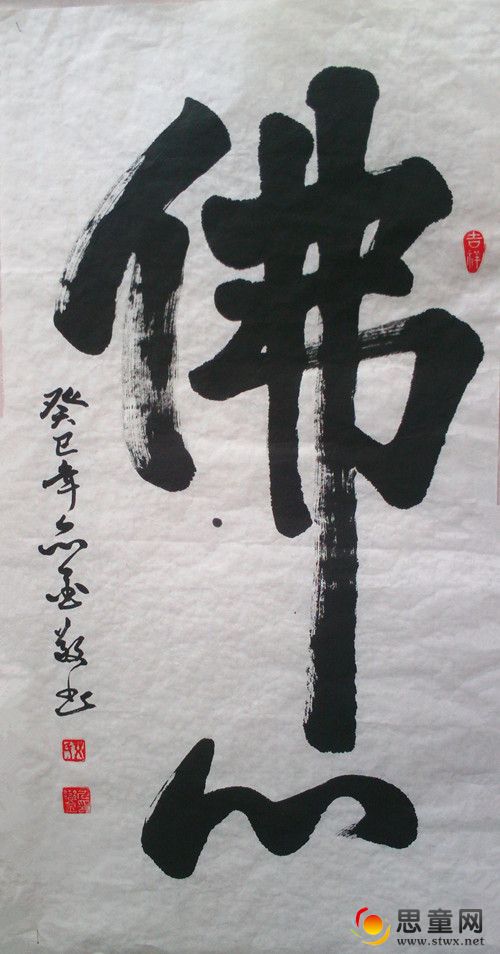 佛心
吉祥
癸巳年志金敬书
思童网
www.stwx.net